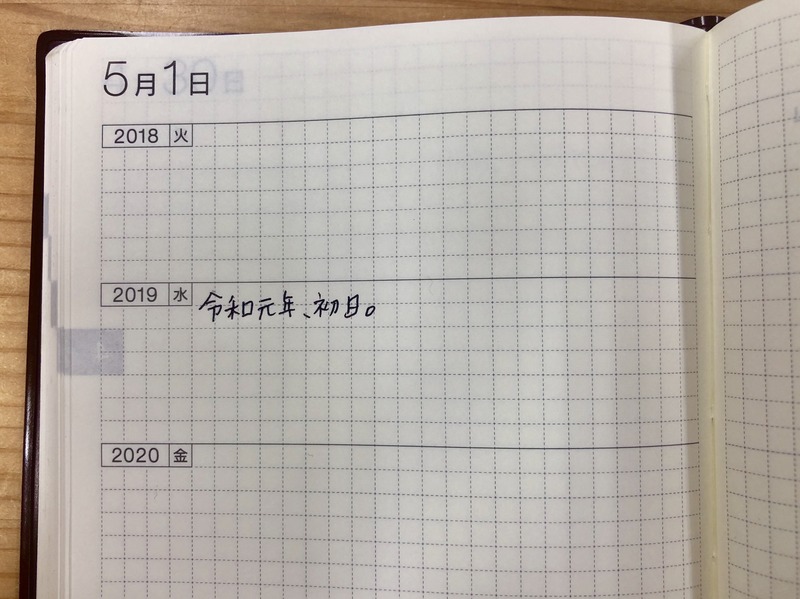 5月1日
2018 火
2019 水
令和元年、初日。
2020 金